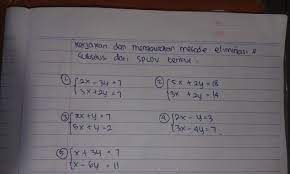 Kerjakan dan menggunakan metode eliminasi &
Subtitusi dari SPLDV berikut.
① { 2x - 3y = 7
3x + 2y = 7
② { 5x + 2y = 18
3x + 2y = 14
③ { 3x + y = 7
5x + y = 2
④ { 2x - y = 3
3x - 4y = 7
⑤ { x + 3y = 7
x - 6y = 11